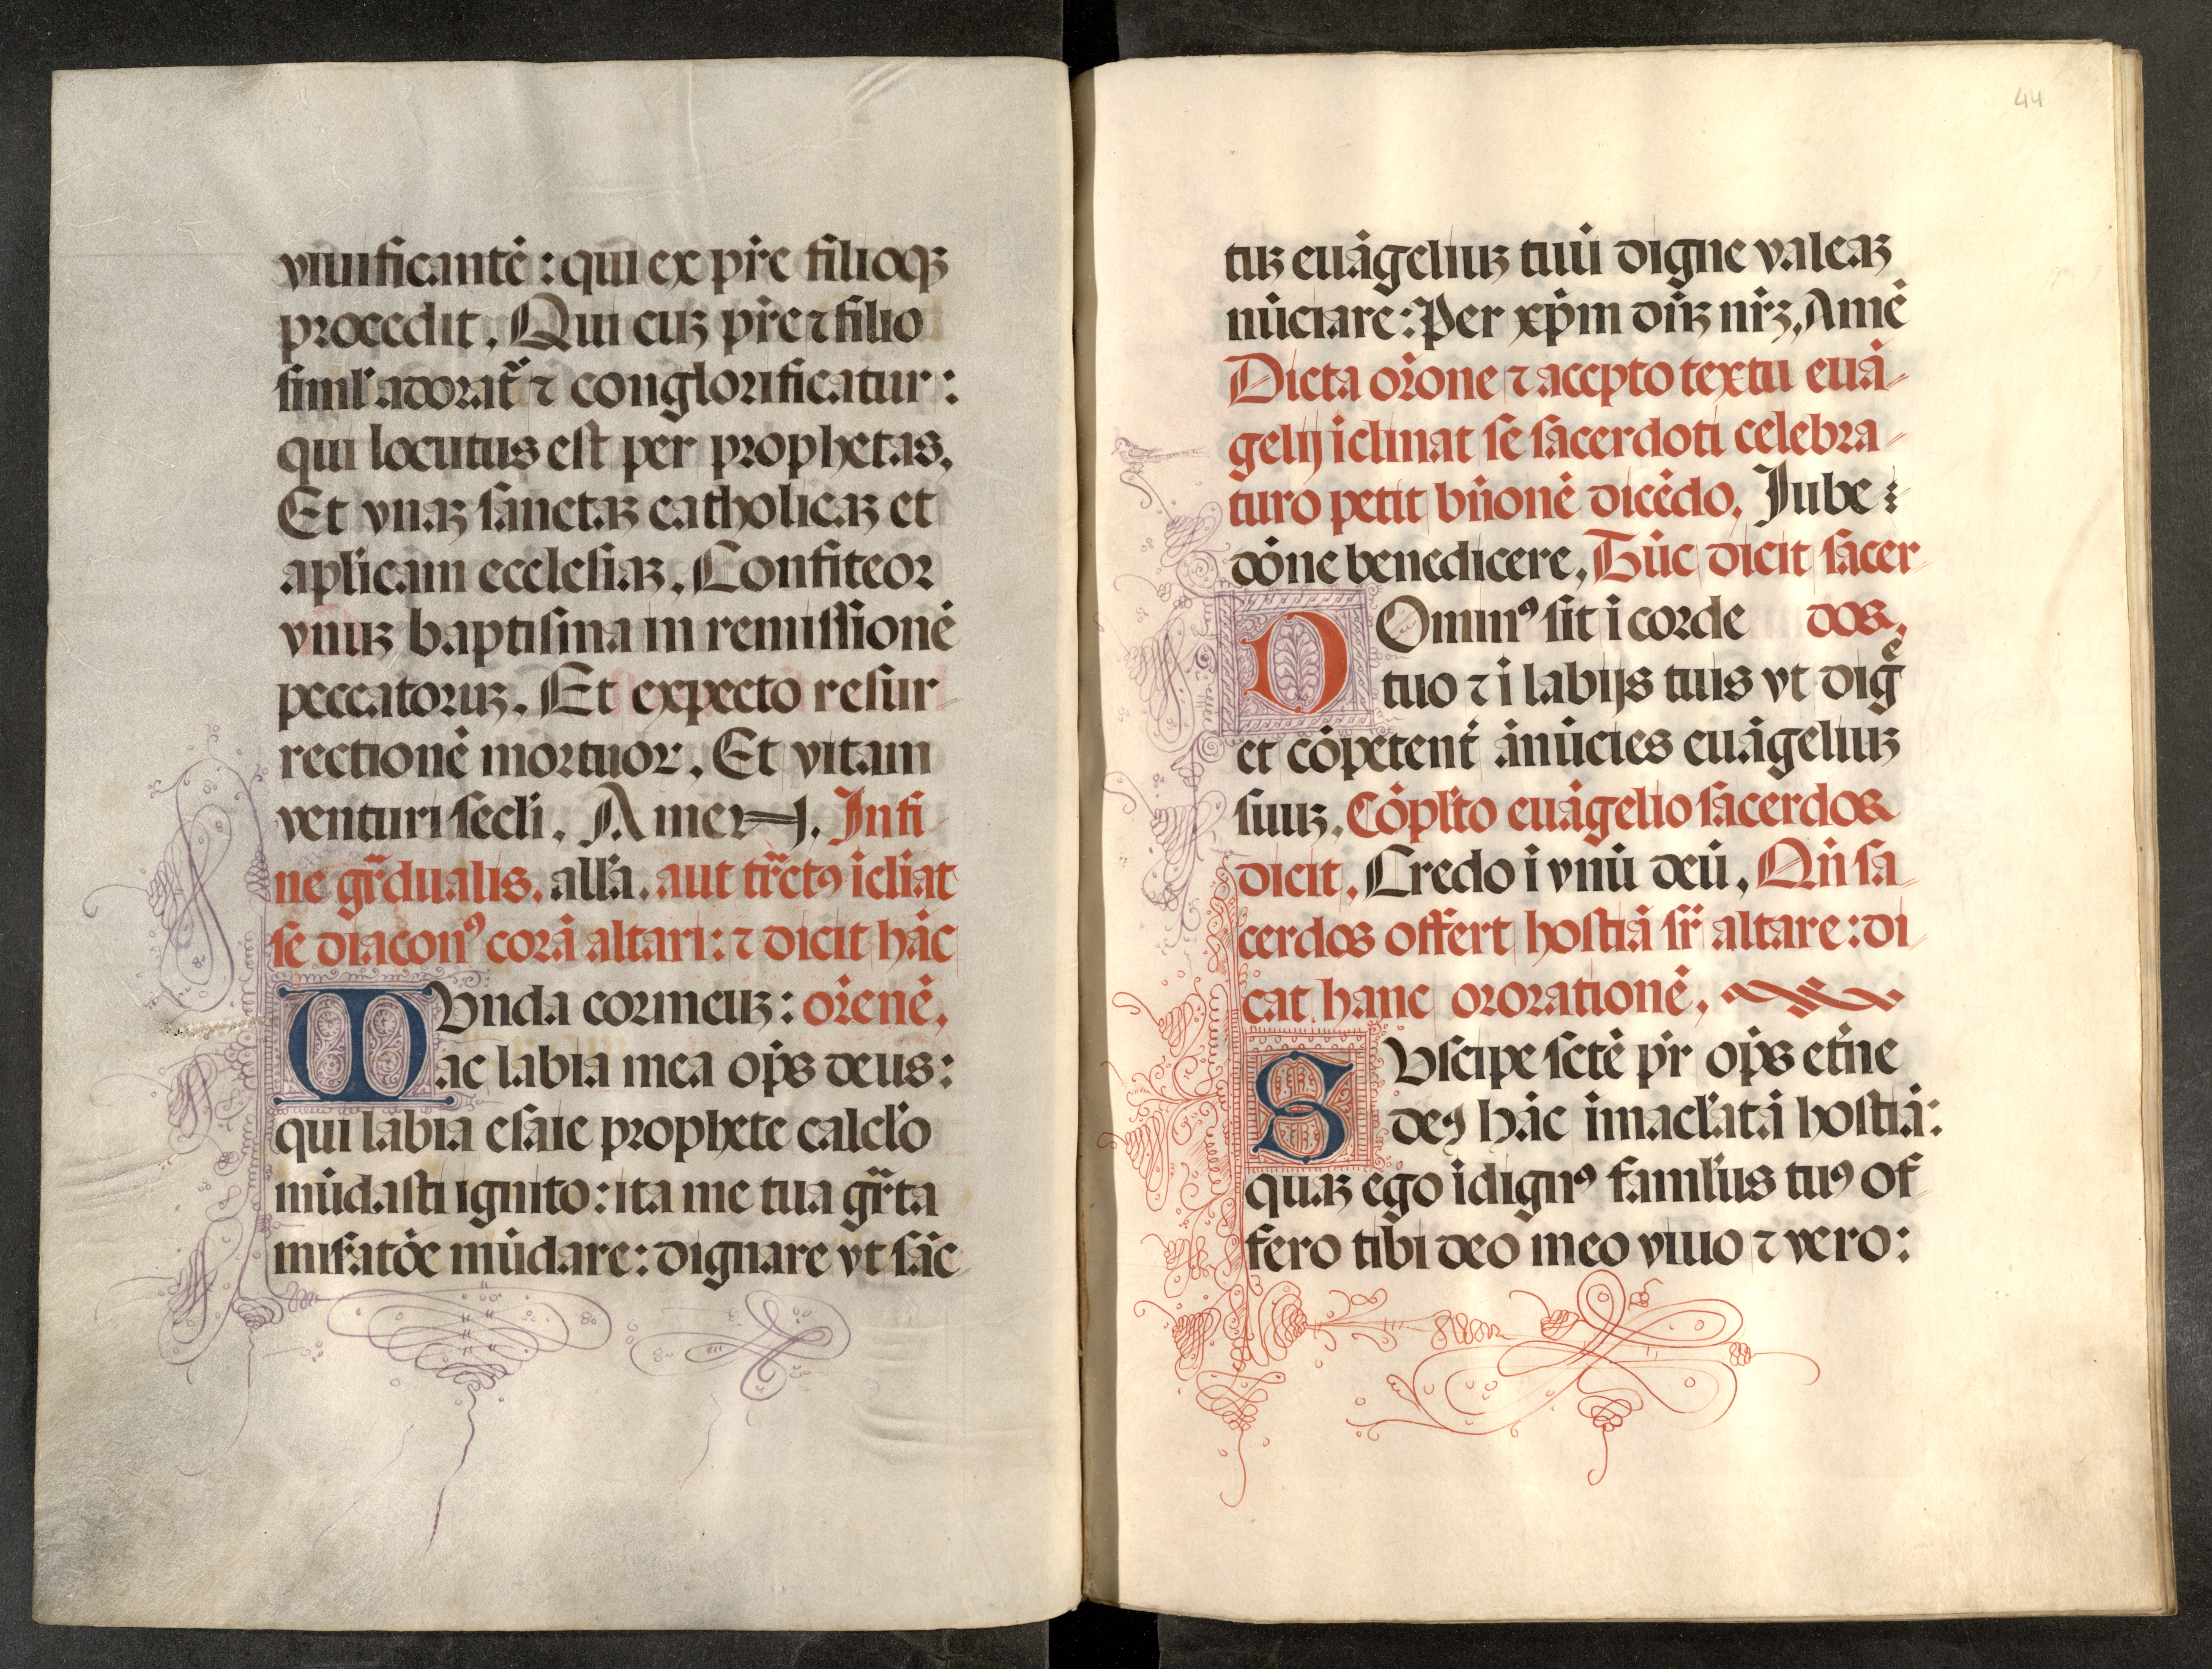 viuificantē : qui ex pr̄e filioqꝫ
procedit. Qui cuꝫ pr̄e ⁊ filio
simĺ adorat᷑ ⁊ conglorificatur :
qui locutus est per prophetas.
Et vnaꝫ sanctaꝫ catholicaꝫ et
aplicam ecclesiaꝫ. Confiteor
vnuꝫ baptisma in remissionē
peccatoruꝫ. Et expecto resur-
rectionē mortuoꝝ. Et vitam
venturi secĺi. Amen. In fi
ne gr̄dualis. alĺa. aut tr̄ctꝰ īcliat
se diaconꝰ corā altari: ⁊ dicit hāc
MVnda cor meuꝫ : or̄enē.
ac labia mea op̄s deus :
qui labia esaie prophete calcĺo
mūdasti ignito : ita me tua gr̄ta
mis̄atōe mūdare : dignare vt sāc
44
tuꝫ euāgeliuꝫ tuū digne valeaꝫ
nūciare : Per xp̄m dn̄ꝫ nr̄ꝫ. Amē
Dicta or̄one ⁊ accepto textu euā-
gelij īclinat se sacerdoti celebra-
turo petit bn̄onē dicēdo. Iube :
dōne benedicere. Tūc dicit sacer
DOminꝰ sit ī corde dos.
tuo ⁊ ī labijs tuis vt digͤ
et cōpetent̄ ānūcies euāgeliuꝫ
suuꝫ. Cōpĺto euāgelio sacerdos
dicit. Credo ī vnū deū. Qn̄ sa
cerdos offert hostiā sr̄ altare : di
cat hanc ororationē.
SVscipe sctē pr̄ op̄s et̄ne
deꝰ hāc īmacĺatā hostiā :
quaꝫ ego īdignꝰ famĺus tuꝰ of
fero tibi deo meo viuo ⁊ vero :